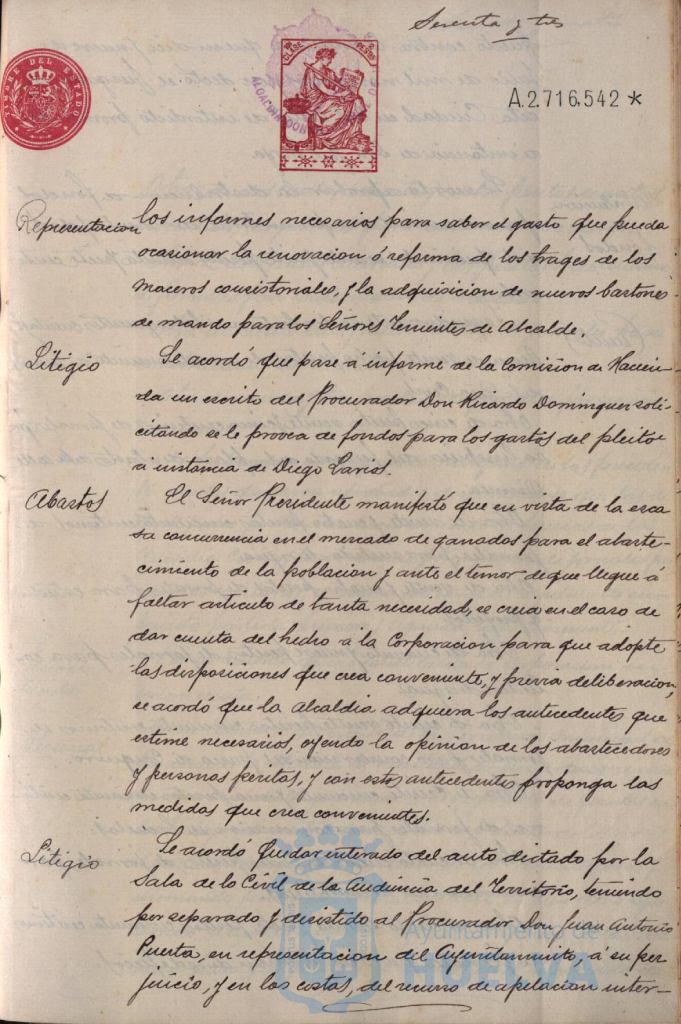 Sesenta y tres
TIMBRE DEL ESTADO
10ª CLASE 2 PESETAS
A.2.716.542 *
Representacion
los informes necesarios para saber el gasto que pueda
ocasionar la renovacion ó reforma de los trages de los
maceros consistoriales, y la adquisicion de nuevos bastones
de mando para los Señores Tenientes de Alcalde.
Litigio
Se acordó que pase á informe de la Comision de Hacien-
da un escrito del Procurador Don Ricardo Dominguez soli-
citando se le provea de fondos para los gastos del pleito
á instancia de Diego Larios.
Abastos
El Señor Presidente manifestó que en vista de la esca
sa concurrencia en el mercado de ganados para el abaste-
cimiento de la poblacion y ante el temor de que llegue á
faltar articulo de tanta necesidad, se creia en el caso de
dar cuenta del hecho á la Corporacion para que adopte
las disposiciones que crea conveniente, y previa deliberacion,
se acordó que la Alcaldia adquiera los antecedentes que
estime necesarios, oyendo la opinion de los abastecedores
y personas peritas, y con estos antecedentes proponga las
medidas que crea convenientes.
Litigio
Se acordó quedar enterado del auto dictado por la
Sala de lo Civil de la Audiencia del Territorio, teniendo
por separado y desistido al Procurador Don Juan Antonio
Puerta, en representacion del Ayuntamiento, á su per
juicio, y en las costas, del recurso de apelacion inter-
Ayuntamiento de
HUELVA